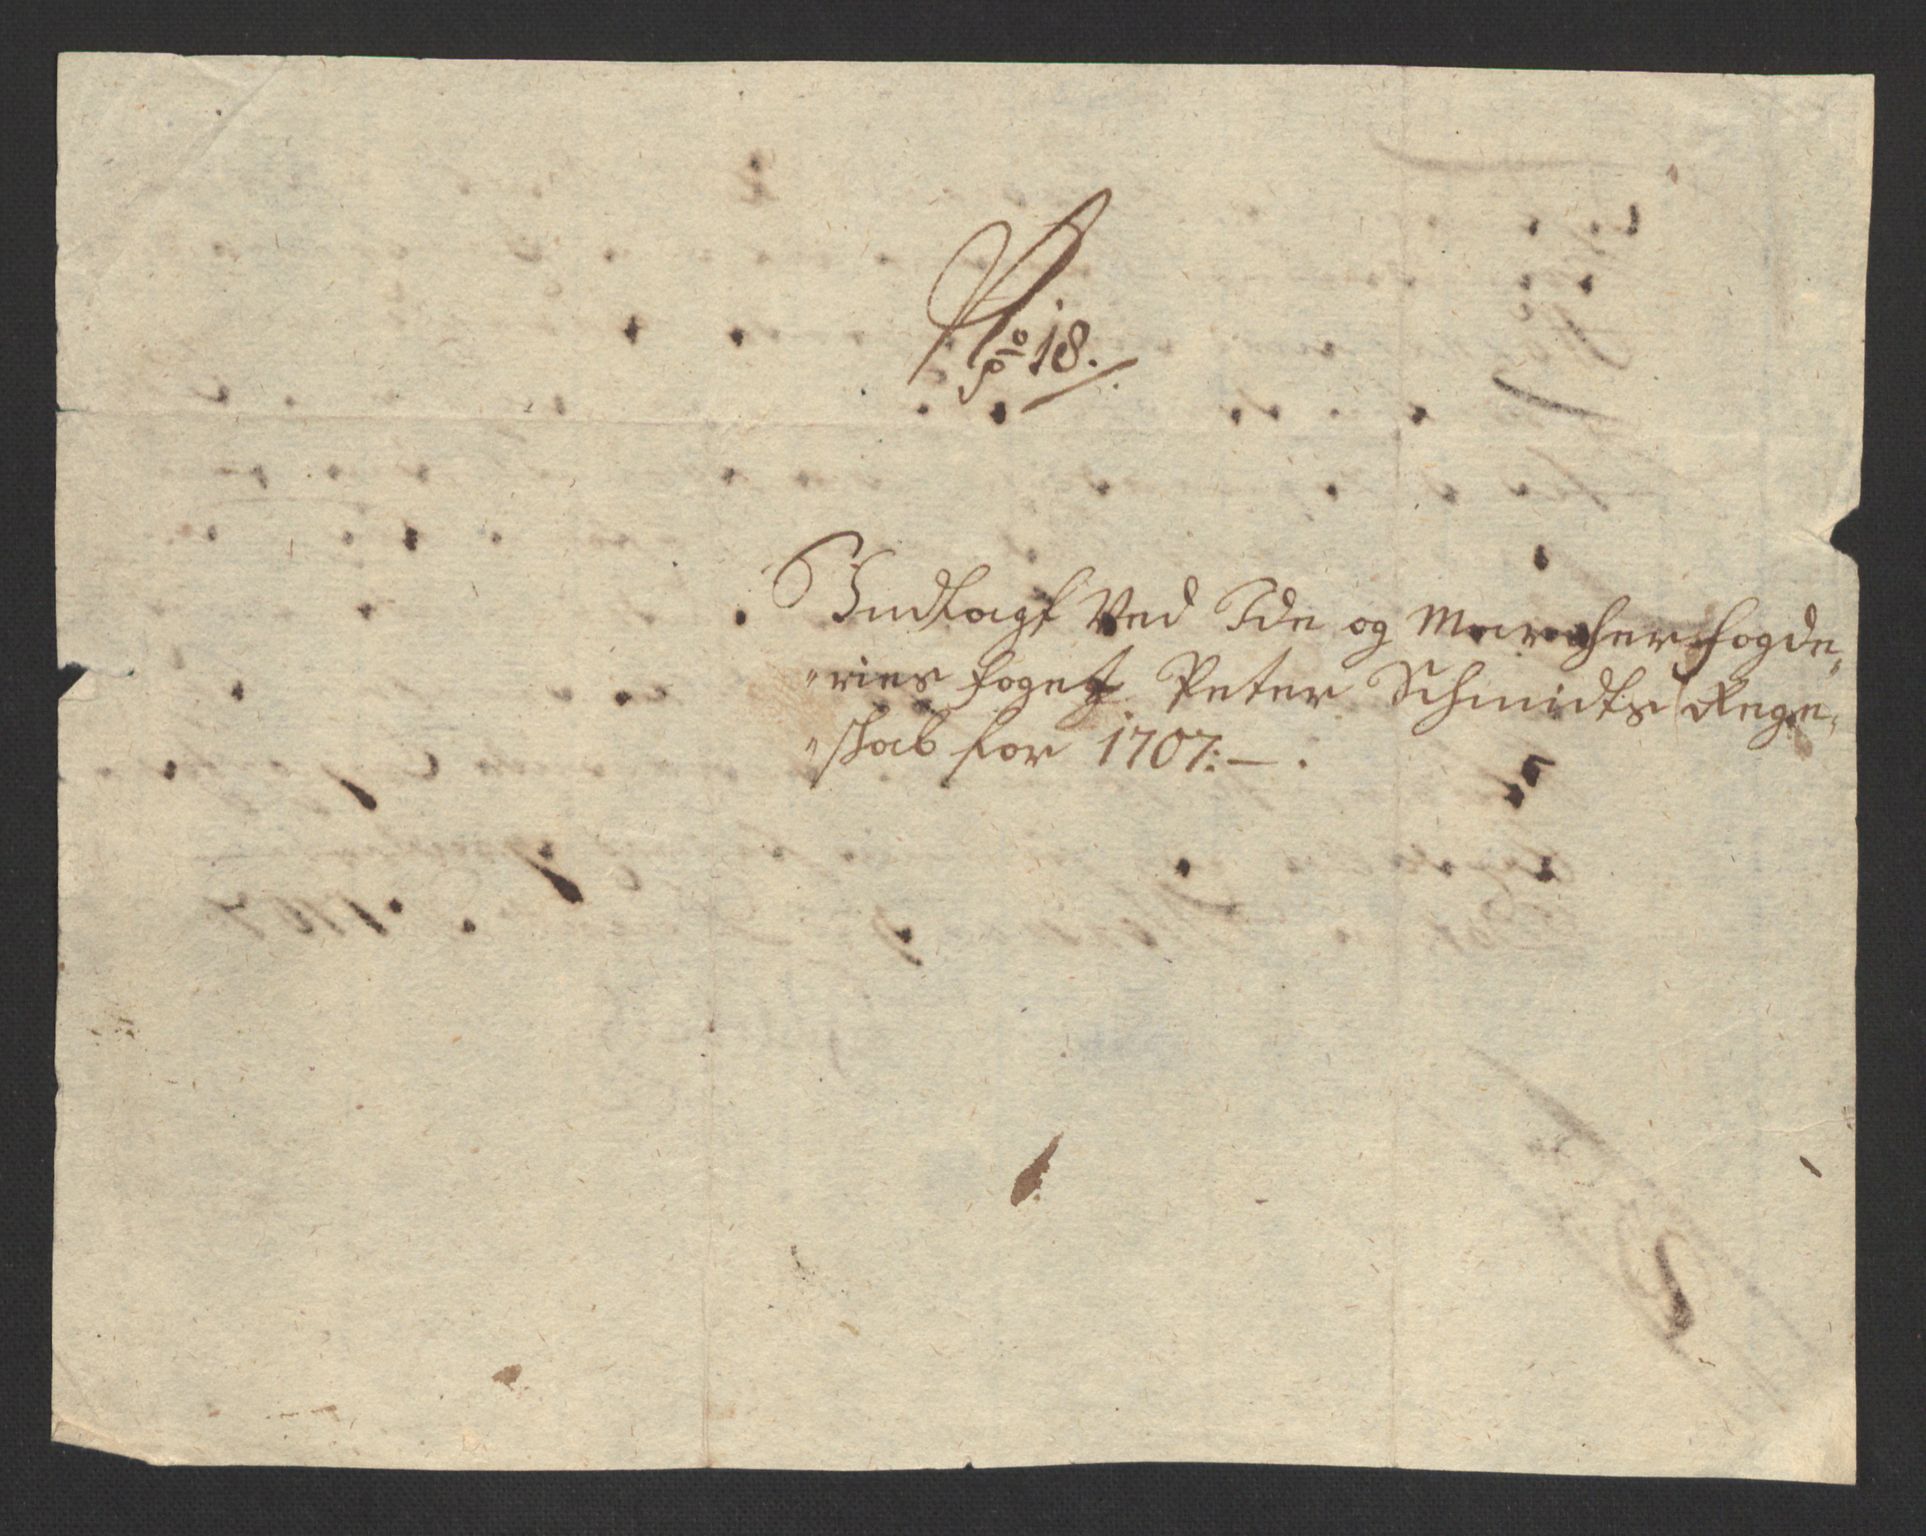 No 18.
Indlagt Ved Ide og Marcher fogde,,
,,ries foget Peter Schmidts Rege,,
,,skab for 1707:—.